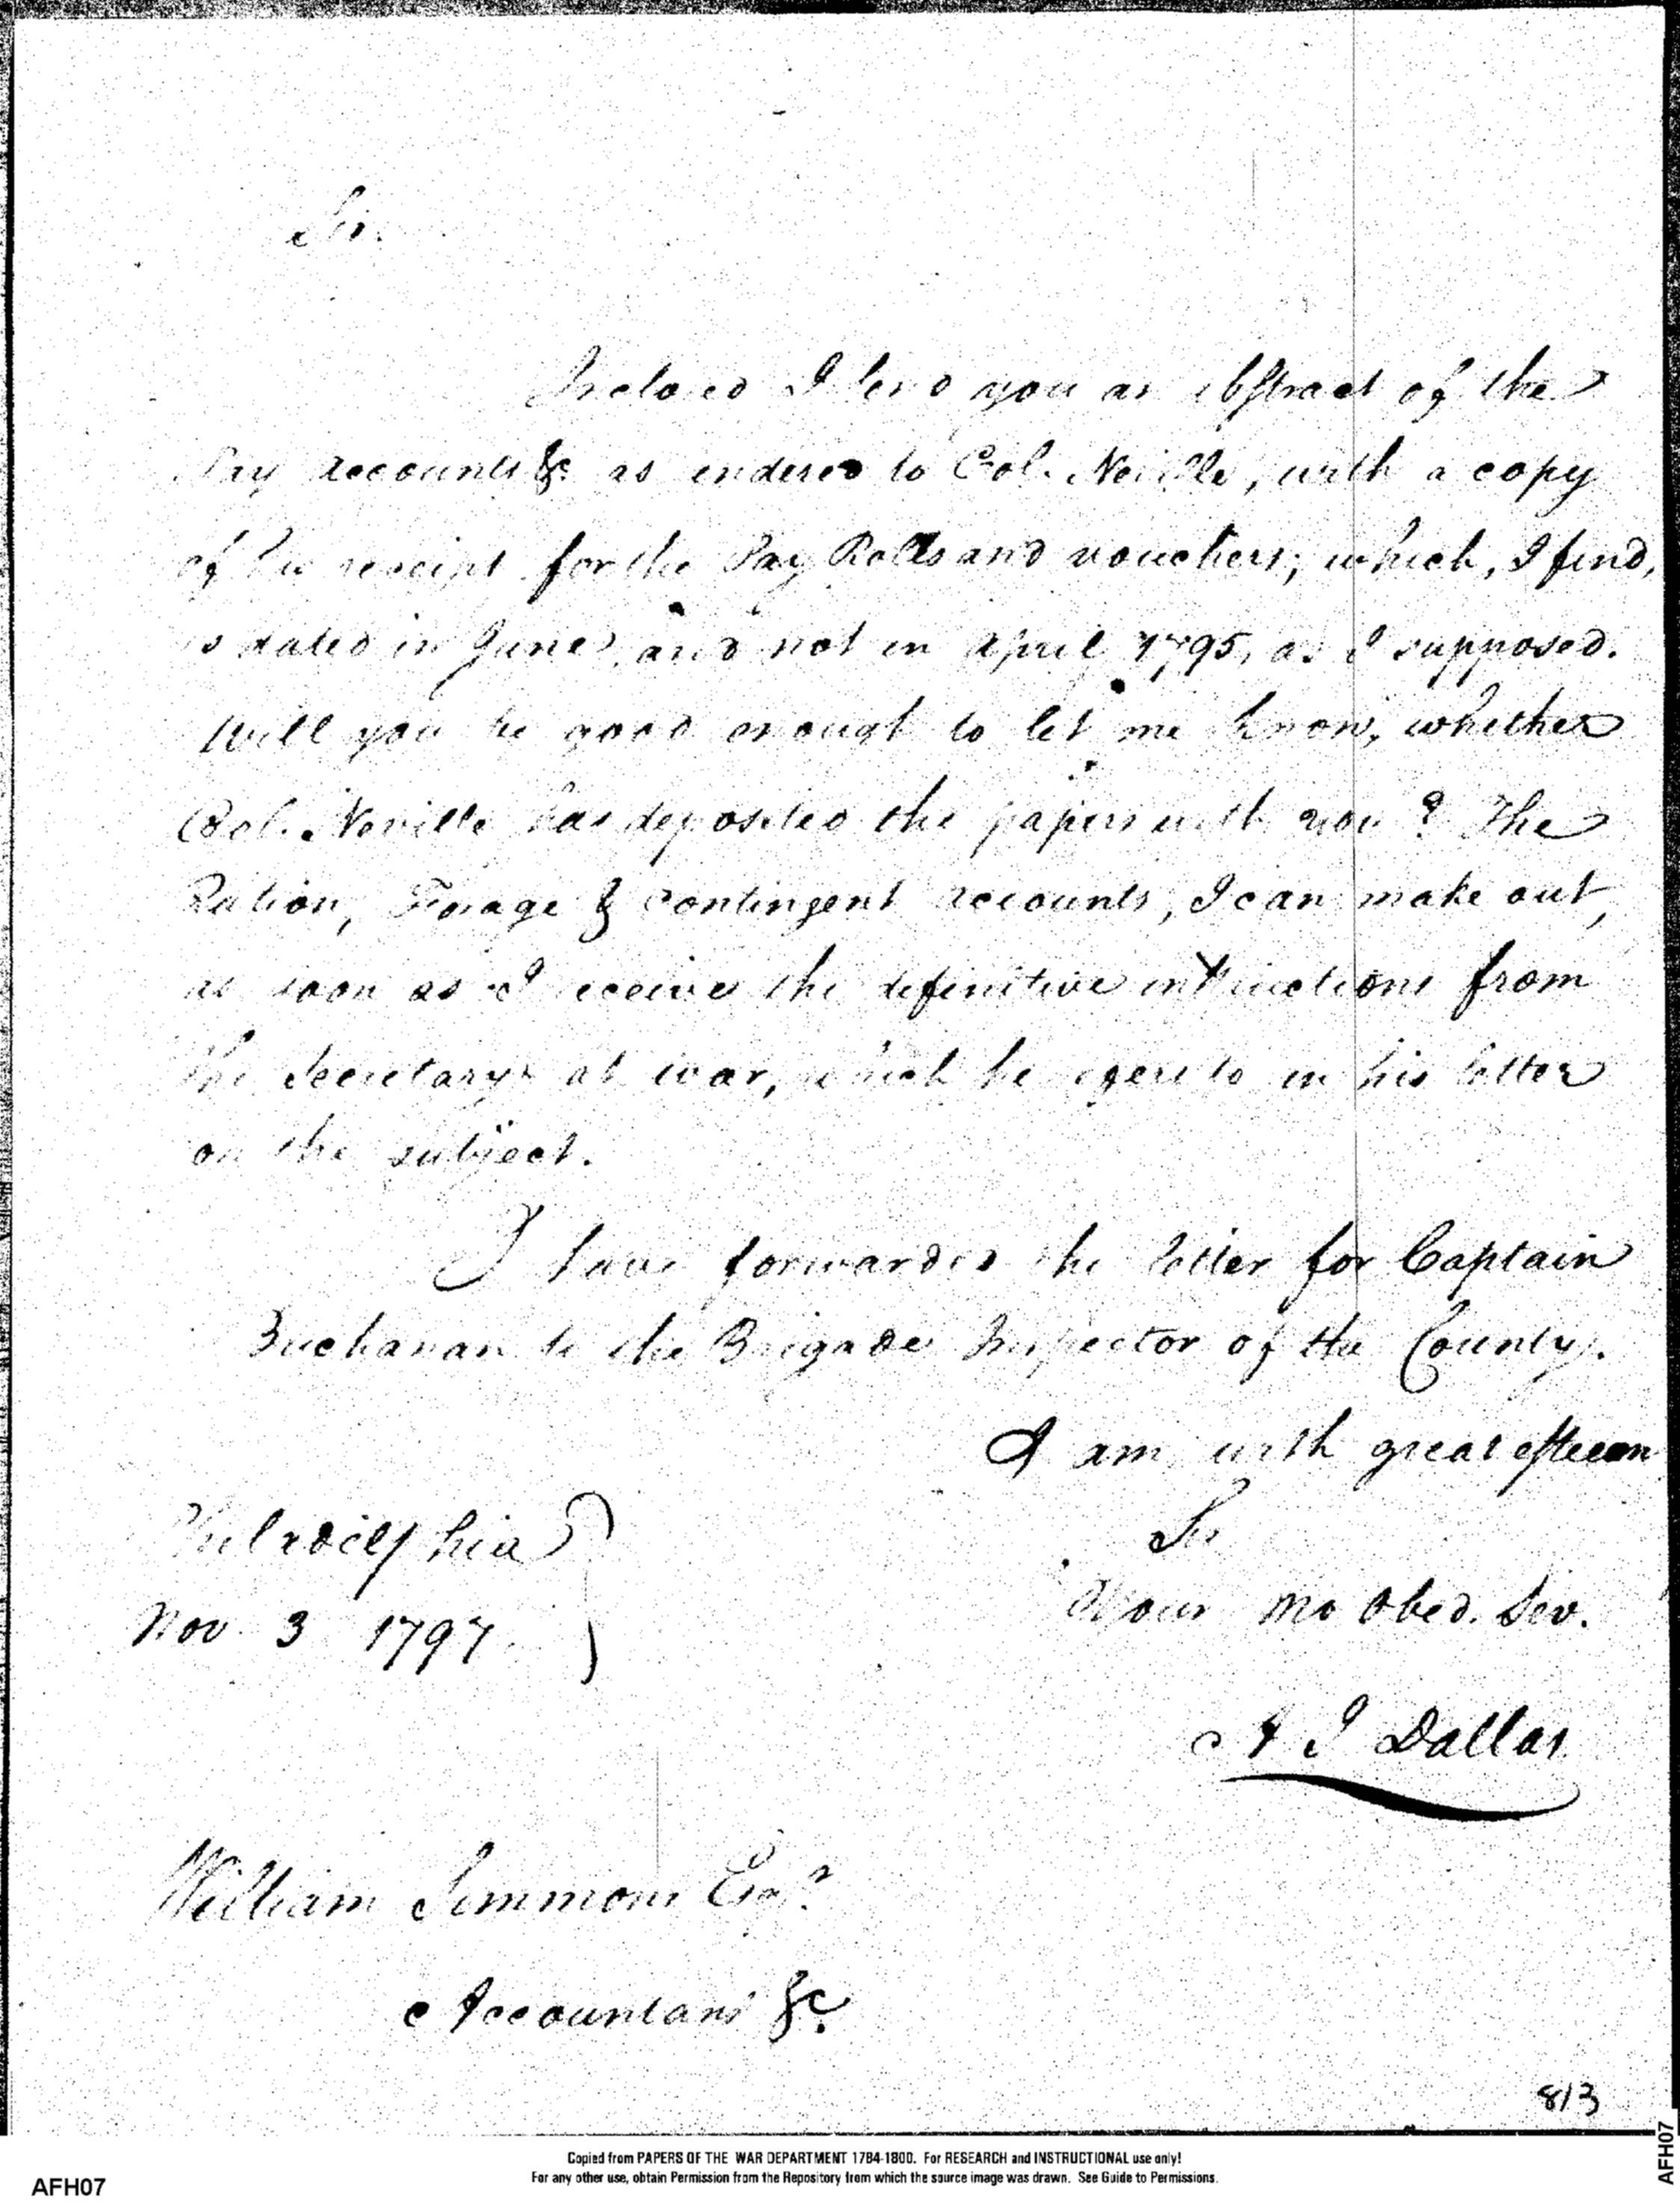 Sir.
Inclosed I send you an abstract of the
Pay accounts &c as rendered to Col. Neville, with a copy
of his receipt for the Pay Rolls and vouchers; which, I find,
is dated in June, and not in april 1795, as I supposed.
Will you be good enough to let me know, whether
Col. Neville has deposited the papers with you? The
Ration, Forage & Contingent accounts, I can make out,
as soon as I receive the definitive instructions from
the Secretary at war, which he refers to in his letter
on the subject.
I have forwarded the letter for Captain
Buchanan to the Brigade Inspector of the County.
I am, with great esteem
Sir
Your Mo Obed. Ser.
Philadelphia
Nov. 3 1797
A J Dallas
William Simmons Esqr.
Accountant &c.
813
Copied from PAPERS OF THE WAR DEPARTMENT 1784-1800. For RESEARCH and INSTRUCTIONAL use only!
For any other use, obtain Permission from the Repository from which the source image was drawn. See Guide to Permissions.
AFH07
AFH07